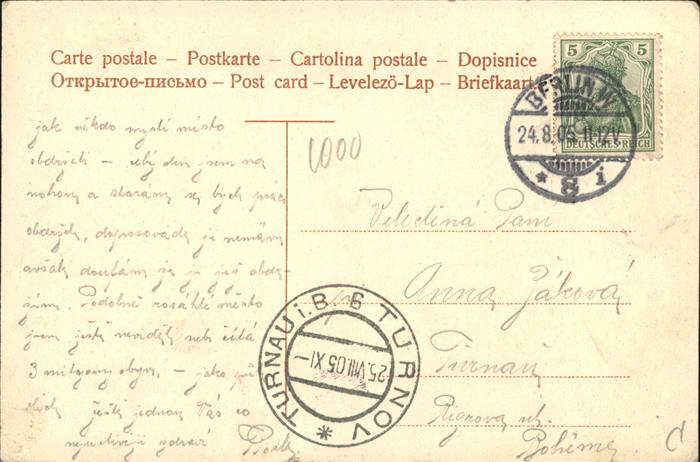 Carte postale – Postkarte – Cartolina postale – Dopisnice
Открытое-письмо – Post card – Levelező-Lap – Briefkaart
5 5
DEUTSCHES REICH
BERLIN.W.
24.8.05.11-12V.
* 8 i
1000
jak někdo myslí město
obdržeti – celý den jsem na
nohou a starám se bych práci
obdržel, doposavád ji nemám
avšak doufám že ji již obdr-
žím. Podobně rozsáhlé město
jsem ještě neviděl neb čítá
3 miliony obyv. – jako
ještě jednou Vás co
nejuctivěji zdraví
Velectěná Paní
Anna Žáková
Turnau
Riegrova ul.
Bohême
TURNAU i. B. 6 TURNOV *
25.VIII.05 XI–